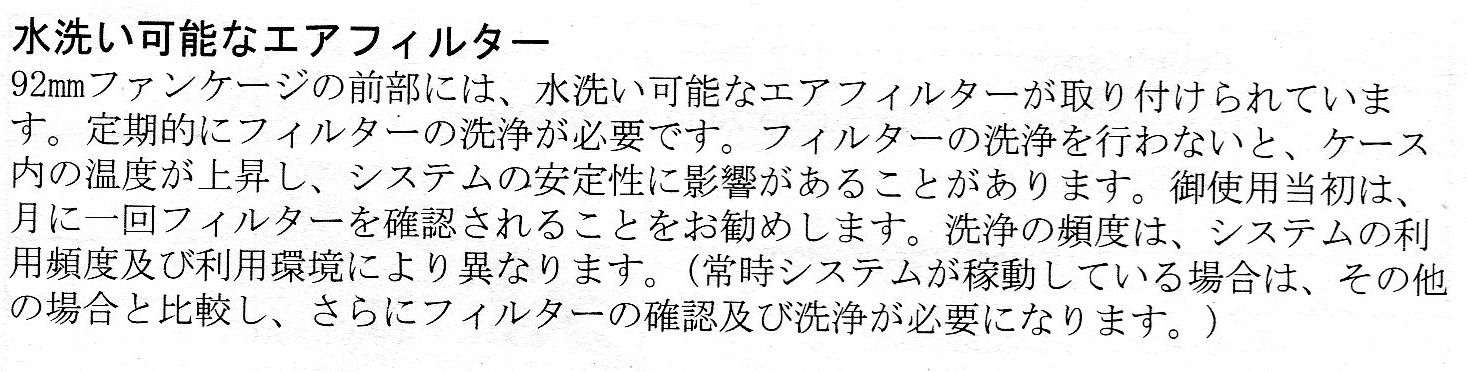 水洗い可能なエアフィルター
92mmファンケージの前部には、水洗い可能なエアフィルターが取り付けられていま
す。定期的にフィルターの洗浄が必要です。フィルターの洗浄を行わないと、ケース
内の温度が上昇し、システムの安定性に影響があることがあります。御使用当初は、
月に一回フィルターを確認されることをお勧めします。洗浄の頻度は、システムの利
用頻度及び利用環境により異なります。(常時システムが稼動している場合は、その他
の場合と比較し、さらにフィルターの確認及び洗浄が必要になります。)